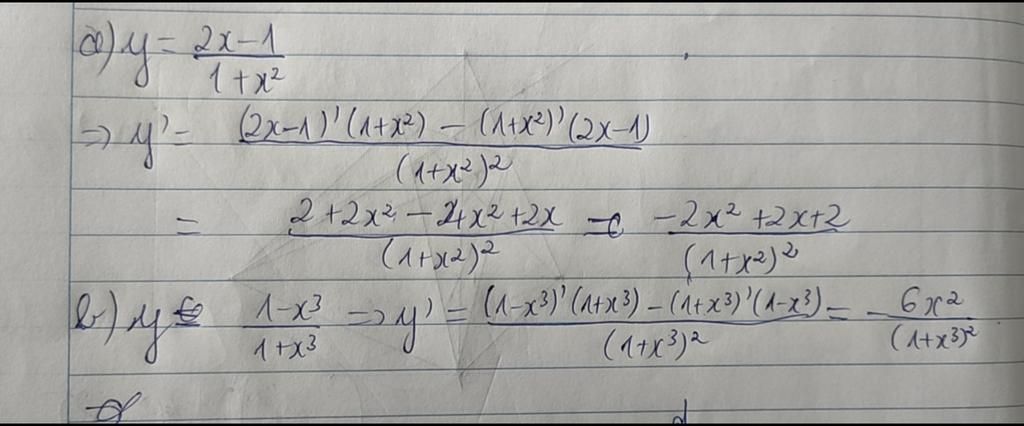 a) y = (2x-1)/(1+x²)
⇒ y' = ((2x-1)'(1+x²) - (1+x²)'(2x-1))/(1+x²)²
= (2+2x²-4x²+2x)/(1+x²)² = (-2x²+2x+2)/(1+x²)²
b) y = (1-x³)/(1+x³) ⇒ y' = ((1-x³)'(1+x³) - (1+x³)'(1-x³))/(1+x³)² = -6x²/(1+x³)²